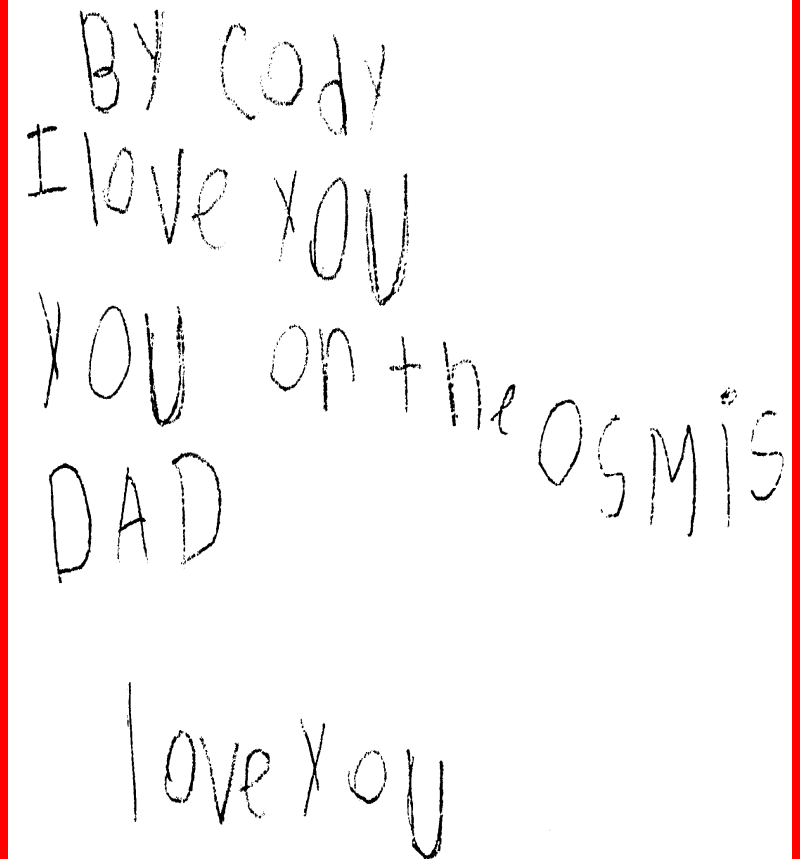 BY Cody
I love YOU
YOU on the OSMIS
DAD
love YOU